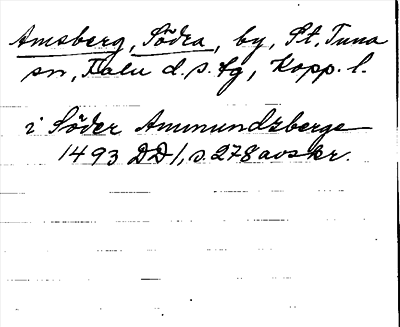 Amsberg, Södra, by, St. Tuna
sn, Falu d. s. tg, Kopp. l.
i Söder Ammundzberge
1493 DD 1, s. 278 avskr.